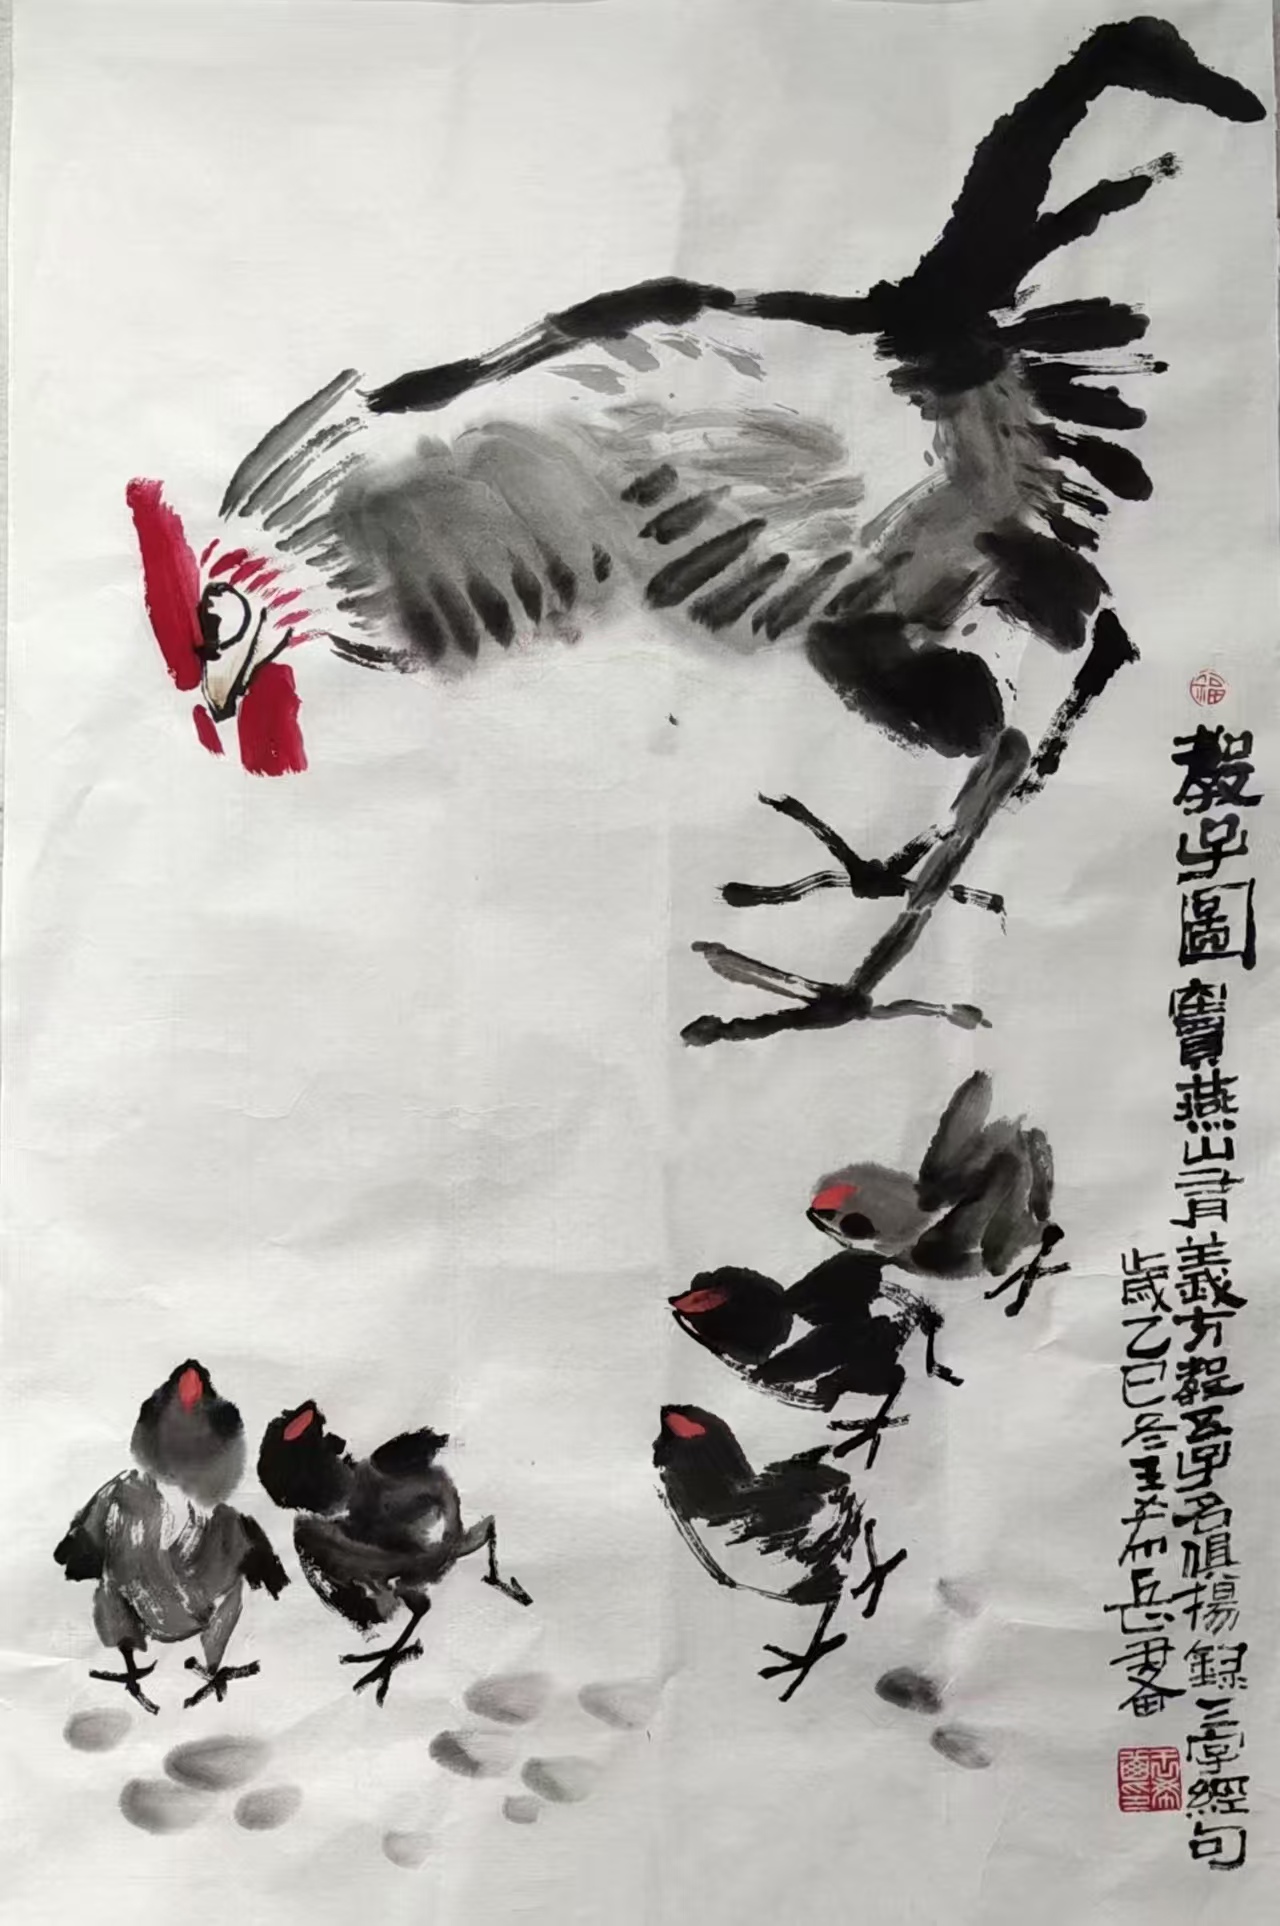 福
教子圖 竇燕山有義方教五子名俱揚錄三字經句
歲乙巳冬王希岳畫